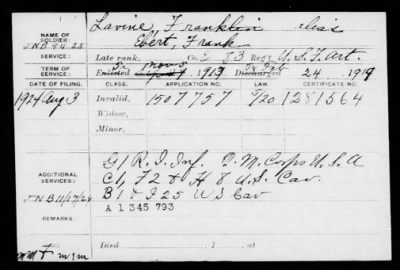 Lavine, Franklin alias
NAME OF SOLDIER: Ebert, Frank
SERVICE: Late rank, Co. 53 Reg't U.S. F. Art.
TERM OF SERVICE: Enlisted Nov 1917 Discharged Feb 24, 1919
DATE OF FILING. CLASS. APPLICATION NO. LAW. CERTIFICATE NO.
1924 Aug 3 Invalid, 1507757 1281564
Widow,
Minor,
ADDITIONAL SERVICES: G 1 R.I. Inf. Q.M. Corps U.S.A
C 1, F 2 & H 8 U.S. Cav.
B 1 & F 25 U S Cav
A 1 345 793
REMARKS:
Died , 1 , at